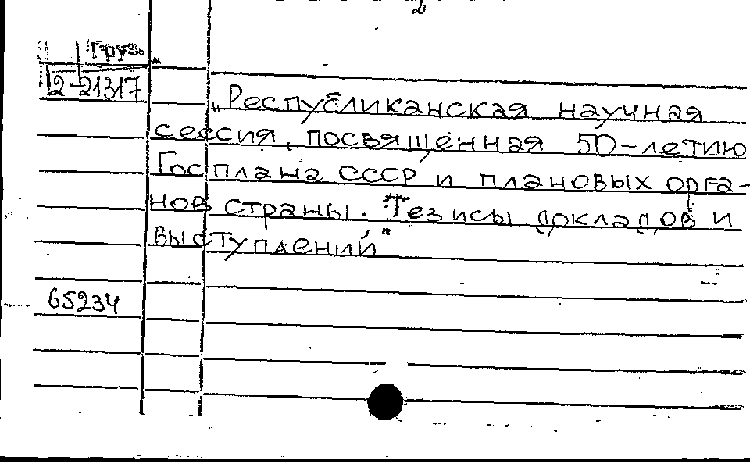 Грузь
2-21317
„Республиканская научная
сессия, посвященная 50-летию
Госплана СССР и плановых орга-
нов страны. Тезисы докладов и
выступлений"
65234